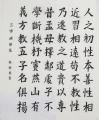 人之初性本善性相
近習相遠苟不教性
乃遷教之道貴以專
昔孟母擇鄰處子不
學斷機杼竇燕山有
義方教五子名俱揚